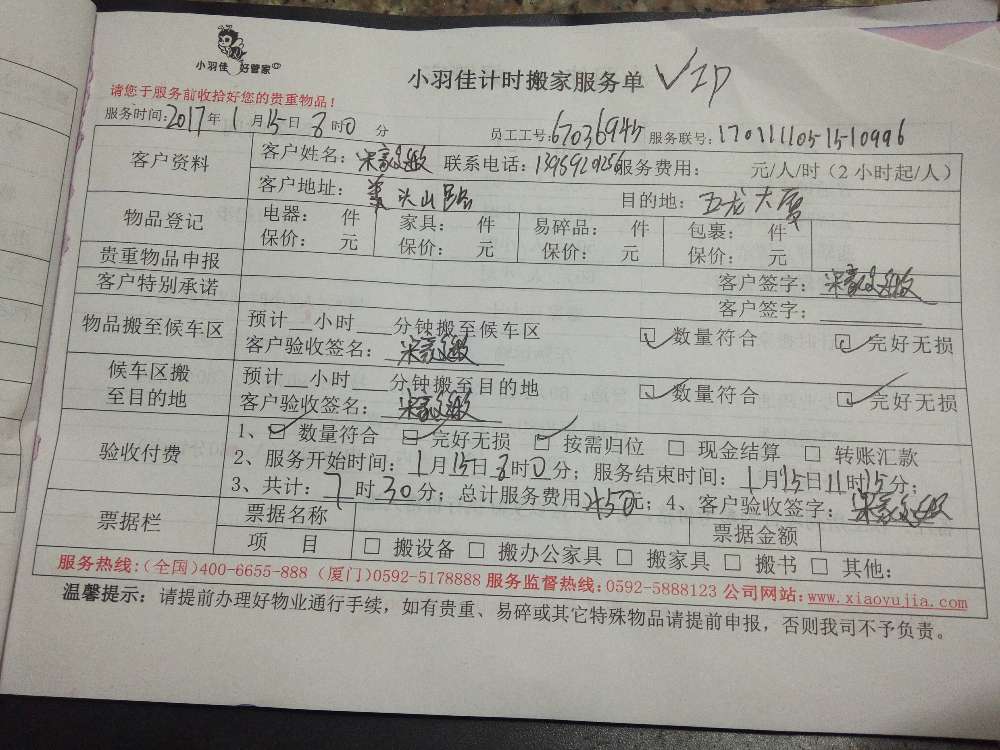 小羽佳 好管家
小羽佳计时搬家服务单 VIP
请您于服务前收拾好您的贵重物品!
服务时间:2017年1月15日8时0分 员工工号:67036945 服务联号:170111105-15-10996
客户资料 客户姓名: 联系电话: 服务费用: 元/人/时(2小时起/人)
客户地址: 头山 目的地:五龙大厦
物品登记 电器: 件 家具: 件 易碎品: 件 包裹: 件
保价: 元 保价: 元 保价: 元 保价: 元
贵重物品申报 客户签字:
客户特别承诺 客户签字:
物品搬至候车区 预计__小时___分钟搬至候车区 ☑数量符合 ☑完好无损
客户验收签名:
候车区搬至目的地 预计__小时___分钟搬至目的地 ☑数量符合 ☑完好无损
客户验收签名:
验收付费 1、☑数量符合 ☑完好无损 ☑按需归位 □现金结算 □转账汇款
2、服务开始时间:1月15日8时0分;服务结束时间:1月15日11时15分;
3、共计:7时30分;总计服务费用450元;4、客户验收签字:
票据栏 票据名称 票据金额
项 目 □搬设备 □搬办公家具 □搬家具 □搬书 □其他:
服务热线:(全国)400-6655-888(厦门)0592-5178888 服务监督热线:0592-5888123 公司网站:www.xiaoyujia.com
温馨提示:请提前办理好物业通行手续,如有贵重、易碎或其它特殊物品请提前申报,否则我司不予负责。